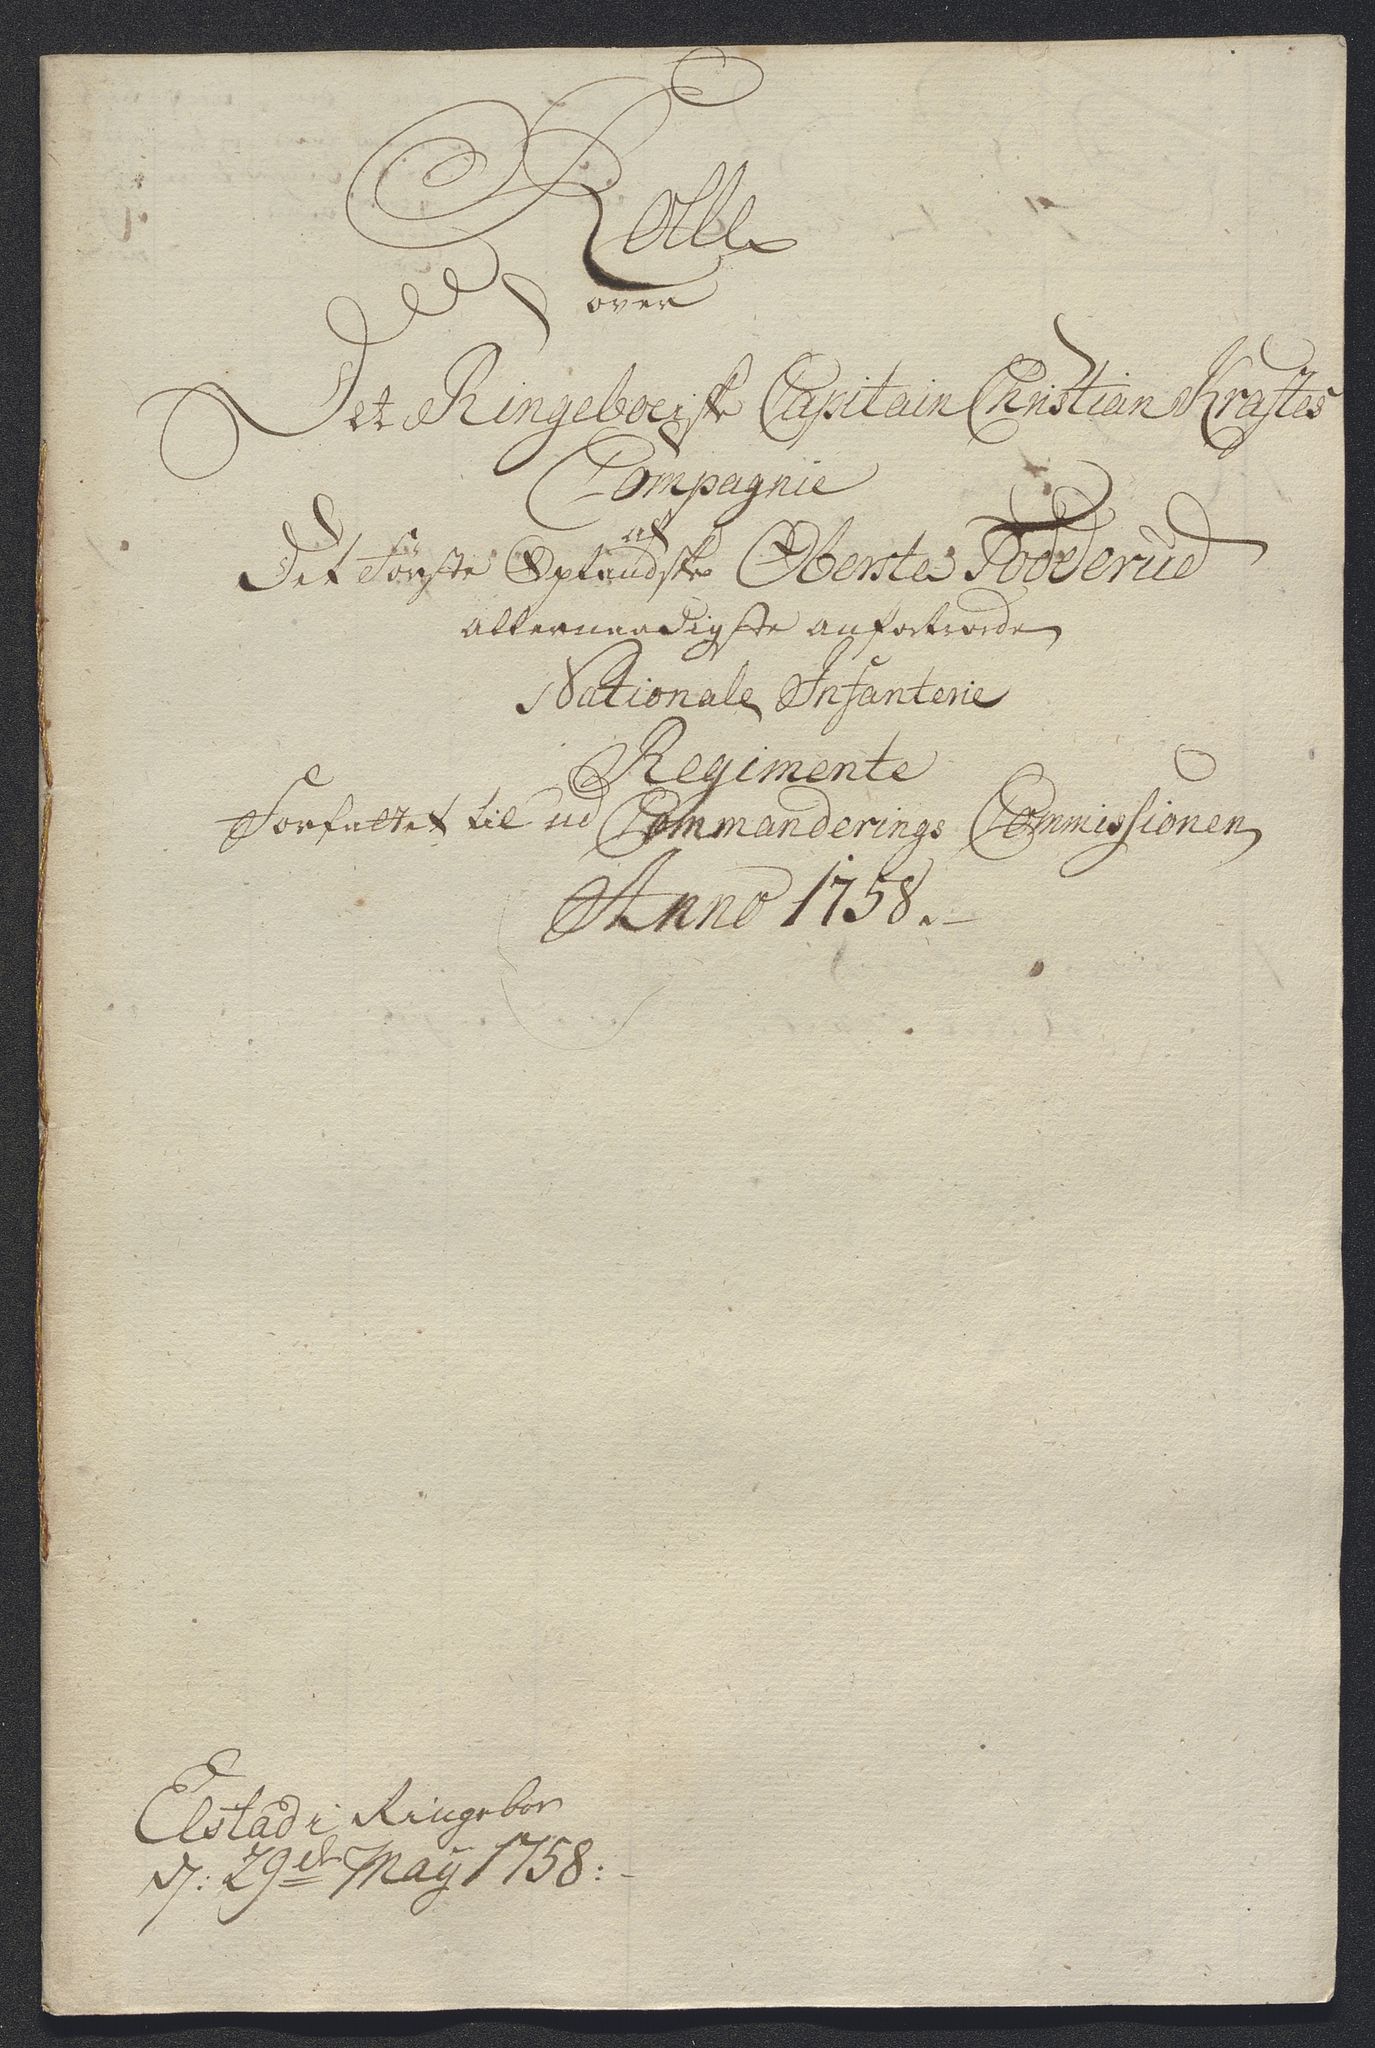 Rolle
over
Det Ringeboeiske Capitain Christian Kraftes
Compagnie
af
Det Första Oplandske Oberste Tooderud
allernaadigste anfortroede
Nationale Infanterie
Regimente
Forfattet til ud Commanderings Commissionen
Anno 1758.
Elstad i Ringeboe
d: 29de May 1758: